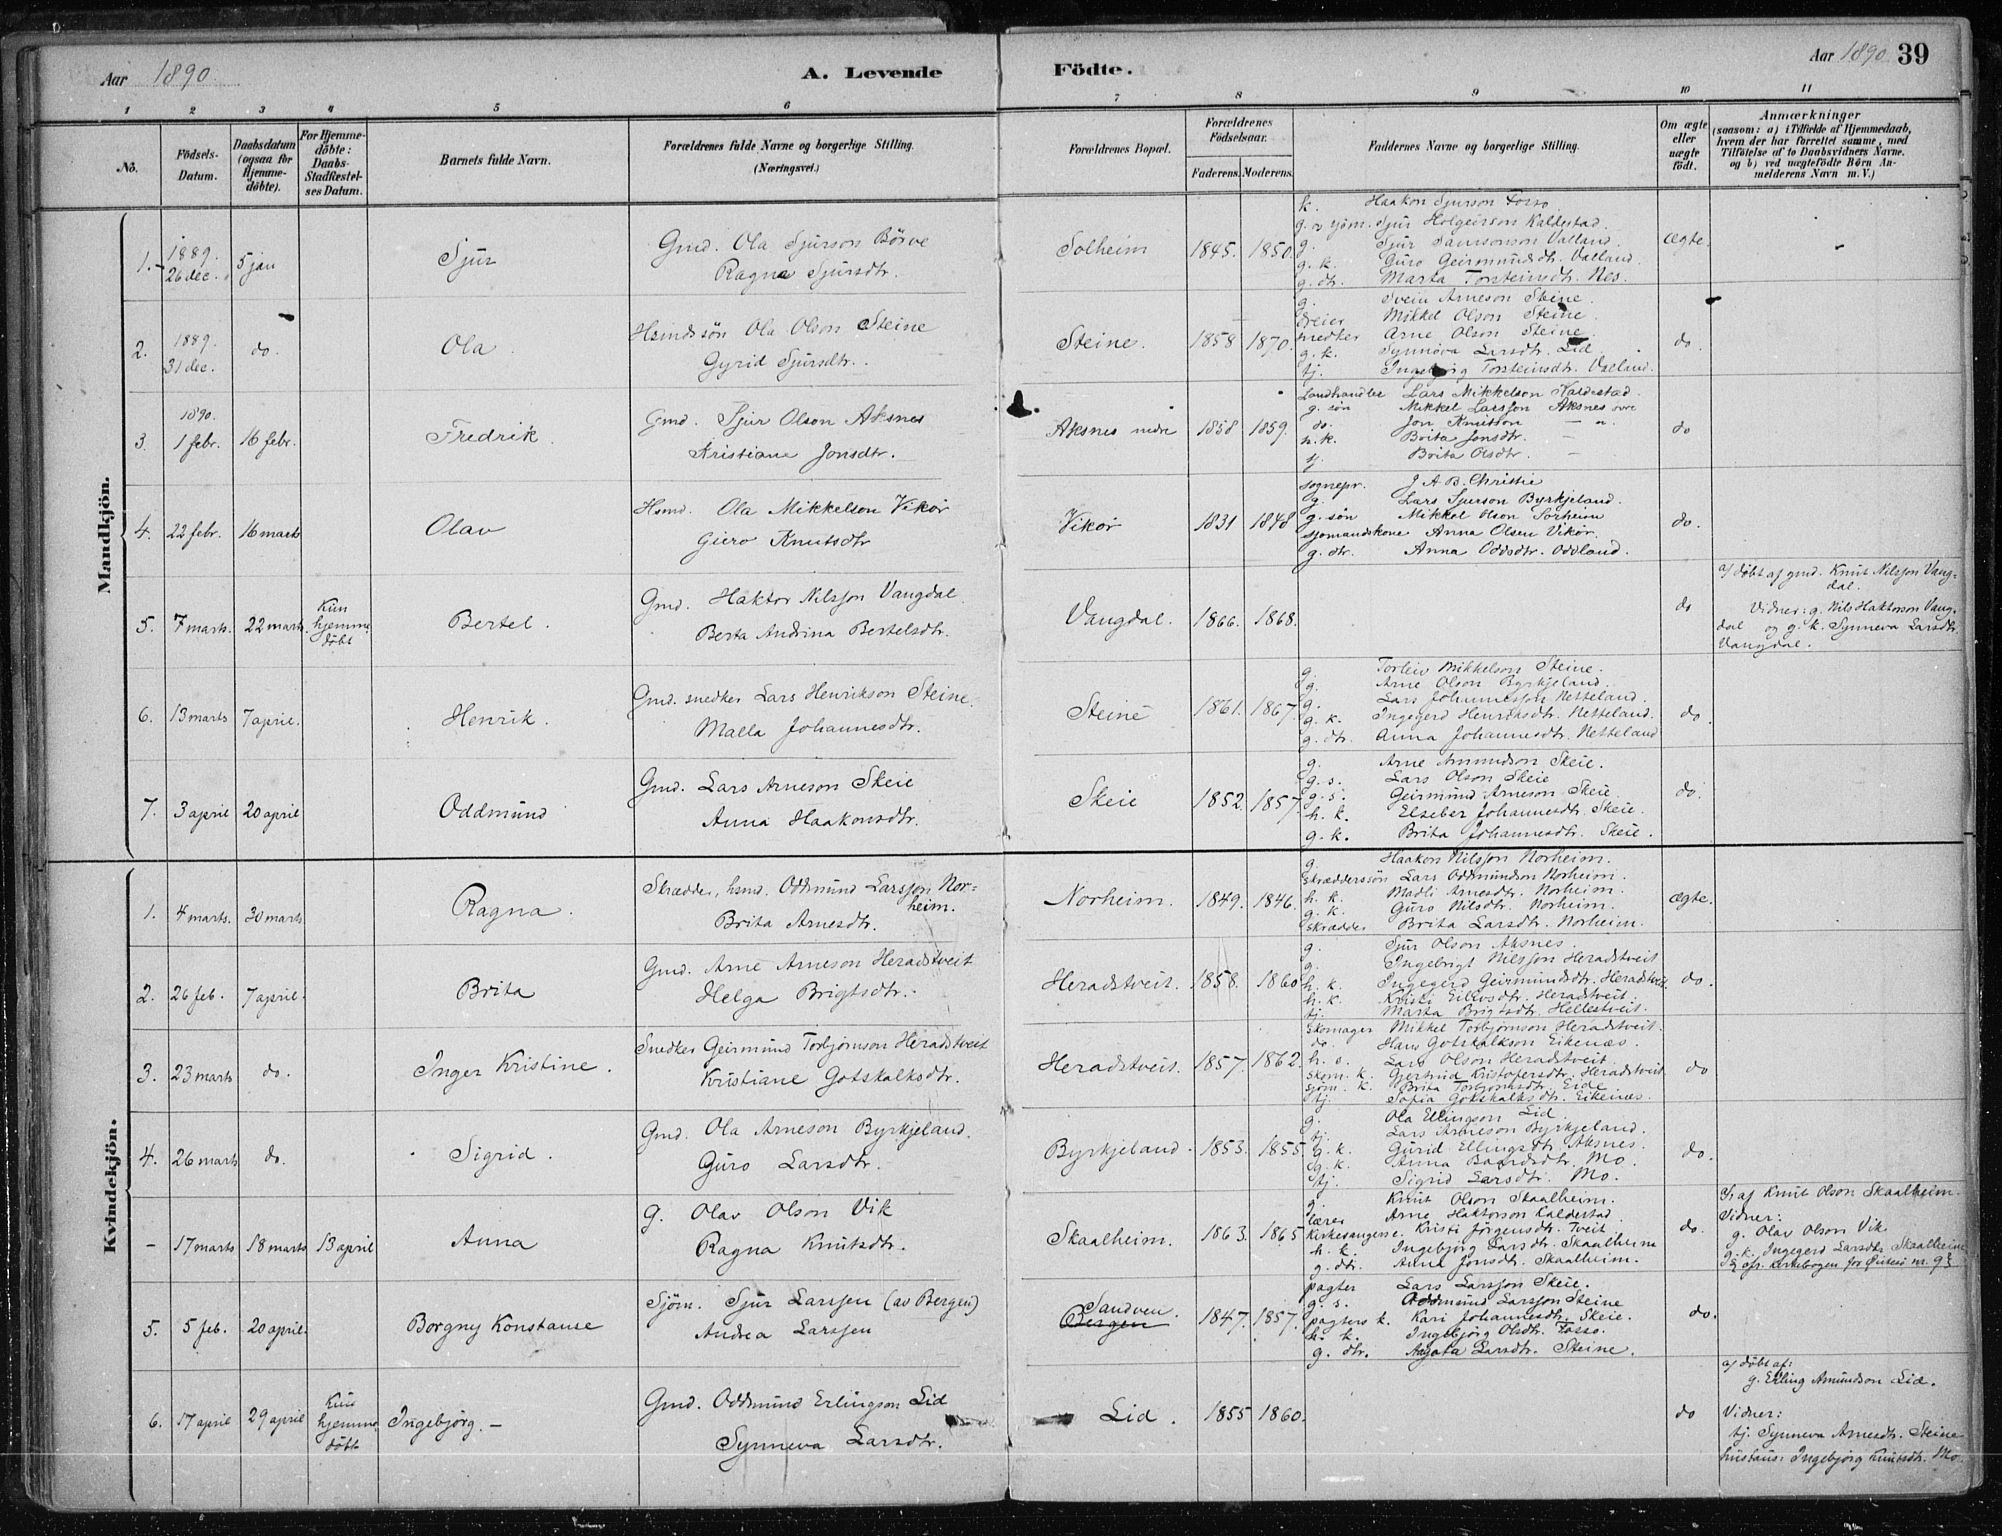 Aar 1890
A. Levende Födte.
Aar 1890 39
1 2 3 4 5 6 7 8 9 10 11
No.
Födsels-Datum.
Daabsdatum (ogsaa for Hjemme-döbte).
For Hjemme-döbte: Daabs-Stadfæstel-ses Datum.
Barnets fulde Navn.
Forældrenes fulde Navne og borgerlige Stilling. (Næringsvei.)
Forældrenes Bopæl.
Forældrenes Födselsaar.
Faderens. Moderens.
Faddernes Navne og borgerlige Stilling.
Om ægte eller uægte födt.
Anmærkninger
(saasom: a) i Tilfælde af Hjemmedaab, hvem der har forrettet samme, med Tilföielse af to Daabsvidners Navne. og b) ved uægtefödte Börn An-melderens Navn m. V.)
Mandkjön.
1. 1889. 26 dec. 5 jan Sjur
Gmd. Ola Sjurson Börve
Ragna Sjursdtr.
Solheim 1845. 1850.
k. Haakon Sjurson Fosso
g. og sjöm. Sjur Holgeirson Kaldestad.
g. Sjur Samsonson Valland.
g. k. Guro Geirmundsdtr. Valland.
g. dtr. Marta Torsteinsdtr. Nes.
Ægte.
2. 1889. 31 dec. do. Ola
Hsmdssön Ola Olson Steine
Gyrid Sjursdtr.
Steine. 1858 1870.
g. Svein Arneson Steine.
Dreier Mikkel Olson Steine
snedker Arne Olson Steine
g. k. Synnöva Larsdtr. Lid.
tj. Ingebjörg Torsteinsdtr. Valland.
do.
3. 1890. 1 febr. 16 febr. Fredrik.
Gmd. Sjur Olson Aksnes
Kristiane Jonsdtr.
Aksnes nedre 1858 1859.
Landhandler Lars Mikkelson Kaldestad.
g. sön Mikkel Larsson Aksnes övre
do. Jon Knutson — n.
h. k. Brita Jonsdtr. —
tj. Brita Olsdtr. —
do
4. 22 febr. 16 marts Olav
Hsmd. Ola Mikkelson Vikör
Guro Knutsdtr
Vikör 1831 1848
sognepr. J A B. Christie
g. Lars Sjurson Byrkjeland.
g. sön Mikkel Olson Sörheim
sjömandskone Anna Olsen Vikör.
g. dtr. Anna Oddsdtr. Oddland.
do.
5. 7 marts. 22 marts. Kun hjemme-döbt Bertel.
Gmd. Haktor Nilsson Vangdal
Berta Andrina Bertelsdtr.
Vangdal. 1866. 1868.
do
a/ döbt af gmd. Knut Nilsson Vang-
dal.
Vidner: g. Nils Haktorson Vang-
dal og g. k. Synneva Larsdtr.
Vangdal.
6. 13 marts 7 april. Henrik.
Gmd. snedker Lars Henrikson Steine.
Malla Johannesdtr.
Steine 1861. 1867
g. Torleiv Mikkelson Steine.
g. Arne Olson Byrkjeland.
g. Lars Johannesson Netteland.
g. k. Ingegerd Henriksdtr. Netteland.
g. dtr. Anna Johannesdtr. Netteland
do.
7. 3 april 20 april Oddmund
Gmd. Lars Arneson Skeie
Anna Haakonsdtr.
Skeie 1852. 1857.
g. Arne Amundson Skeie.
g. s. Lars Olson Skeie
g. s. Geirmund Arneson Skeie.
h. k. Elseber Johannesdtr. Skeie.
g. k. Brita Johannesdtr. Skeie.
do.
Kvindekjön.
1. 4 marts. 30 marts Ragna.
Skrædder, hsmd. Oddmund Larsson Nor=
heim.
Brita Arnesdtr.
Norheim. 1849. 1846.
g. Haakon Nilsson Norheim.
skrædderssön Lars Oddmundson Norheim.
h. k. Madli Arnesdtr. Norheim.
g. k. Guro Nilsdtr. Norheim.
skrædder Brita Larsdtr. Norheim.
ægte.
2. 26 feb. 7 april. Brita
Gmd. Arne Arneson Heradstveit
Helga Brigtsdtr.
Heradstveit. 1858. 1860
g. Sjur Olson Aksnes.
g. Ingebrigt Nilsson Heradstveit
h. k. Ingegerd Geirmundsdtr. Heradstveit.
h. k. Kristi Eilevsdtr. Heradstveit.
tj. Marta Brigtsdtr. Hellestveit.
do.
3. 23 marts do. Inger Kristine.
Snedker Geirmund Torbjörnson Heradstveit
Kristiane Gotskalksdtr.
Heradstveit. 1857. 1862.
Skomager Mikkel Torbjörnson Heradstveit.
do. Hans Gotskalkson Eikenæs.
h. s. Lars Olson Heradstveit
skom. k. Gjertrud Kristofersdtr. Heradstveit
sjöm. k. Brita Torbjörnsdtr. Eide
tj. Sofia Gotskalksdtr. Eikenæs.
do
4. 26 marts do. Sigrid.
Gmd. Ola Arneson Byrkjeland.
Guro Larsdtr.
Byrkjeland. 1853. 1855
g. Ola Ellingson Lid.
tj. Lars Arneson Byrkjeland.
g. k. Gurid Ellingsdtr Aksnes.
g. k. Anna Baardsdtr. Mo.
tj. Sigrid Larsdtr. Mo.
do.
- 17 marts 18 marts 13 april Anna
G. Olav Olson Vik
Ragna Knutsdtr.
Skaalheim. 1863. 1865
g. Knut Olson Skaalheim.
lærer Arne Haktorson Kaldestad.
Kirkesangerske. Kristi Jörgensdtr. Tveit
h. k. Ingebjörg Larsdtr. Skaalheim
g. dtr. Anna Jonsdtr. Skaalheim.
do.
af Knut Olson Skaalheim.
Vidner:
g. Olav Olson Vik.
g. k. Ingegerd Larsdtr. Skaalheim
cfr. kirkebogen for nr. 9
5. 5 feb. 20 april. Borgny Konstanse
Sjöm. Sjur Larssen (av Bergen)
Andrea Larssen
Sandven.
Bergen 1847. 1857.
pagter Lars Larsson Skeie.
g. s. Oddmund Larsson Steine
pagters k. Kari Johannesdtr. Skeie.
h. k. Ingebjörg Olsdtr. Fosso.
g. dtr. Agata Larsdtr. Steine.
do.
6. 17 april 29 april Kun hjemme-döbt Ingebjörg. -
Gmd. Oddmund Erlingson Lid
Synneva Larsdtr.
Lid. 1855 1860.
do
a/ döbt af:
g. Erling Amundson Lid.
Vidner:
tj. Synneva Arnesdtr. Steine
Ingebjörg Knutsdtr. Mo.